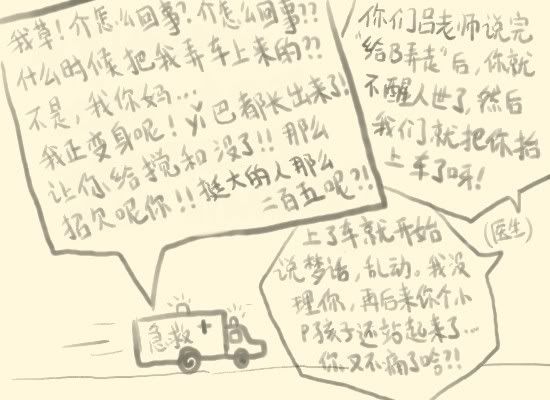 我草！介怎么回事？介怎么回事？？
什么时候把我弄车上来的？？
不是，我你妈…
我正变身呢！yǐ巴都长出来了！
让你给搅和没了！！那么
招欠呢你！！挺大的人那么
二百五呢？！
你们吕老师说完
"给B弄走"后，你就
不醒人世了，然后
我们就把你抬
上车了呀！
(医生)
上了车就开始
说梦话，乱动。我没
理你，再后来你个小
P孩子还站起来了…
你又不痛了哈？！
急救